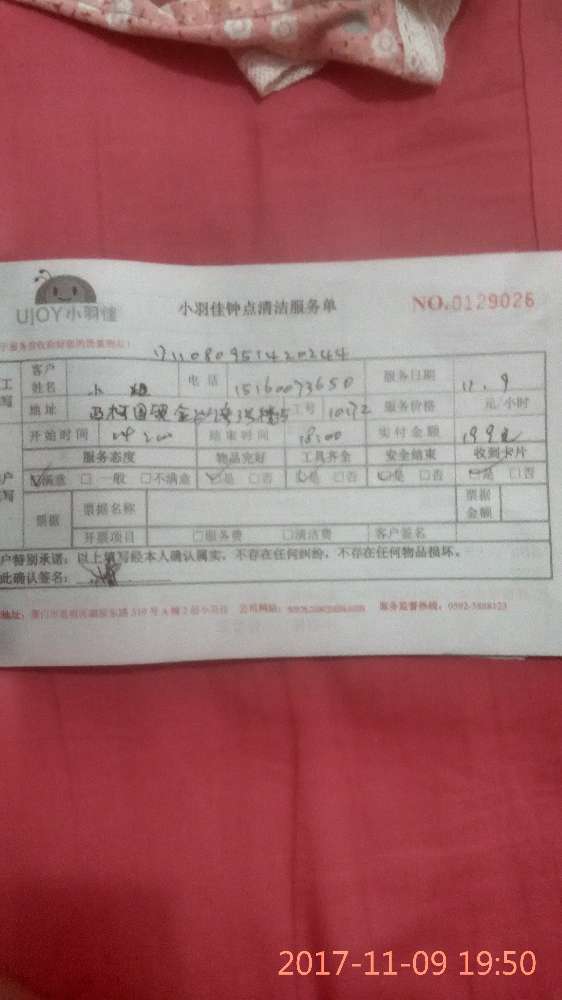 UJOY小羽佳 小羽佳钟点清洁服务单 NO.0129026
1711080951420244
客户姓名 小姐 电话 15160073650 服务日期 11.9
地址 工号 10172 服务价格 元/小时
开始时间 14:00 结束时间 18:00 实付金额 199元
服务态度 物品完好 工具齐全 安全结束 收到卡片
满意 一般 不满意 是 否 是 否 是 否 是 否
票据 票据名称 票据金额
开票项目 服务费 清洁费 客户签名
户特别承诺：以上填写经本人确认属实，不存在任何纠纷，不存在任何物品损坏。
此确认签名：
地址： 310号A幢2层小羽佳 公司网站： 服务监督热线：0592-5888123
2017-11-09 19:50